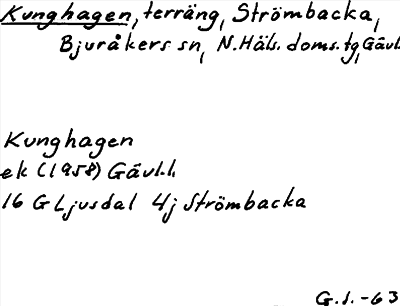 Kunghagen, terräng, Strömbacka,
Bjuråkers sn, N. Häls. doms. tg, Gävl.
Kunghagen
ek (1958) Gävl.l.
16 G Ljusdal 4j Strömbacka
G.S.-63